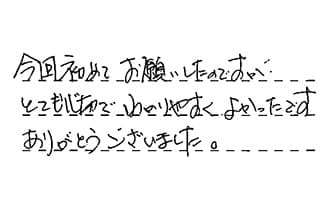 今回初めてお願いしたのですが
とてもじょうぶでわかりやすくよかったです
ありがとうございました。